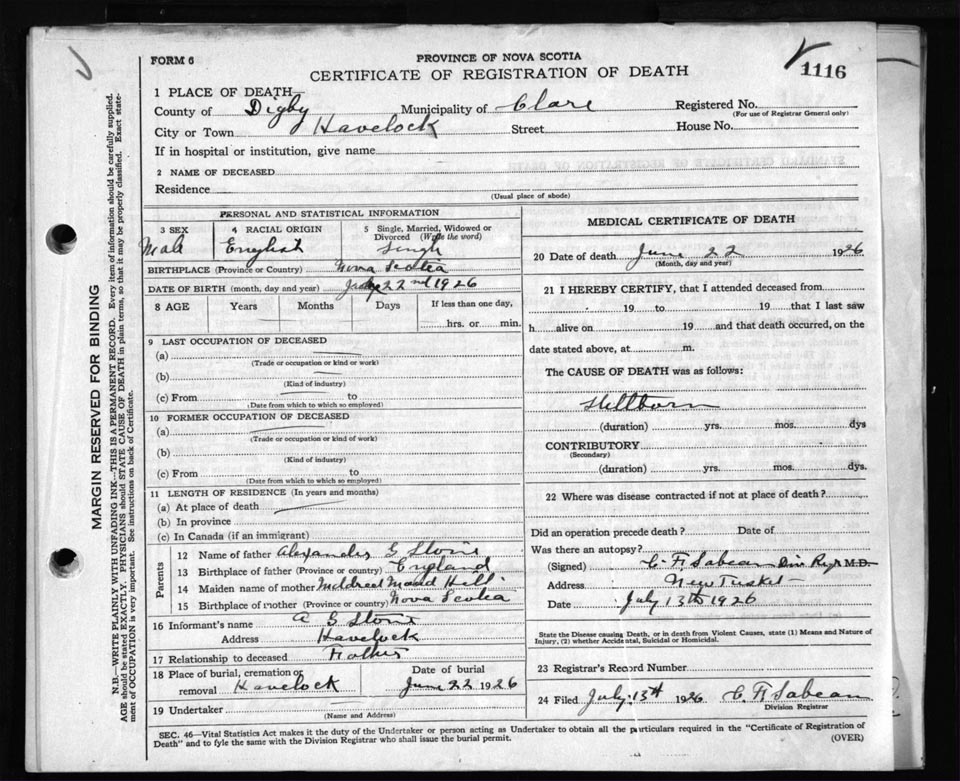 FORM 6
PROVINCE OF NOVA SCOTIA
CERTIFICATE OF REGISTRATION OF DEATH
1116
1 PLACE OF DEATH—
County of Digby Municipality of Clare Registered No.
(For use of Registrar General only)
City or Town Havelock Street House No.
If in hospital or institution, give name
2 NAME OF DECEASED
Residence
(Usual place of abode)
PERSONAL AND STATISTICAL INFORMATION
3 SEX 4 RACIAL ORIGIN 5 Single, Married, Widowed or Divorced (Write the word)
Male English Single
BIRTHPLACE (Province or Country) Nova Scotia
DATE OF BIRTH (month, day and year) 22nd 1926
8 AGE Years Months Days If less than one day,
hrs. or min.
9 LAST OCCUPATION OF DECEASED
(a)
(Trade or occupation or kind of work)
(b)
(Kind of industry)
(c) From to
(Date from which to which so employed)
10 FORMER OCCUPATION OF DECEASED
(a)
(Trade or occupation or kind of work)
(b)
(Kind of industry)
(c) From to
(Date from which to which so employed)
11 LENGTH OF RESIDENCE (In years and months)
(a) At place of death
(b) In province
(c) In Canada (if an immigrant)
Parents
12 Name of father Alexander G Stone
13 Birthplace of father (Province or country) England
14 Maiden name of mother Mildred Maud Hill
15 Birthplace of mother (Province or country) Nova Scotia
16 Informant's name A G Stone
Address Havelock
17 Relationship to deceased Father
18 Place of burial, cremation or removal Havelock
Date of burial June 22 1926
19 Undertaker
(Name and Address)
MEDICAL CERTIFICATE OF DEATH
20 Date of death June 22 1926
(Month, day and year)
21 I HEREBY CERTIFY, that I attended deceased from
19 to 19 that I last saw
h alive on 19 and that death occurred, on the
date stated above, at m.
The CAUSE OF DEATH was as follows:
Stillborn
(duration) yrs. mos. dys
CONTRIBUTORY
(Secondary)
(duration) yrs. mos. dys.
22 Where was disease contracted if not at place of death?
Did an operation precede death? Date of
Was there an autopsy?
(Signed) C. H Sabean Div Regr M.D.
Address New Tusket
Date July 13th 1926
State the Disease causing Death, or in death from Violent Causes, state (1) Means and Nature of
Injury, (2) whether Accidental, Suicidal or Homicidal.
23 Registrar's Record Number
24 Filed July 13th 1926 C. H Sabean
Division Registrar
SEC. 46—Vital Statistics Act makes it the duty of the Undertaker or person acting as Undertaker to obtain all the particulars required in the "Certificate of Registration of
Death" and to fyle the same with the Division Registrar who shall issue the burial permit.
(OVER)
MARGIN RESERVED FOR BINDING
N.B.—WRITE PLAINLY WITH UNFADING INK—THIS IS A PERMANENT RECORD. Every item of information should be carefully supplied.
AGE should be stated EXACTLY. PHYSICIANS should STATE CAUSE OF DEATH in plain terms, so that it may be properly classified. Exact state-
ment of OCCUPATION is very important. See instructions on back of Certificate.